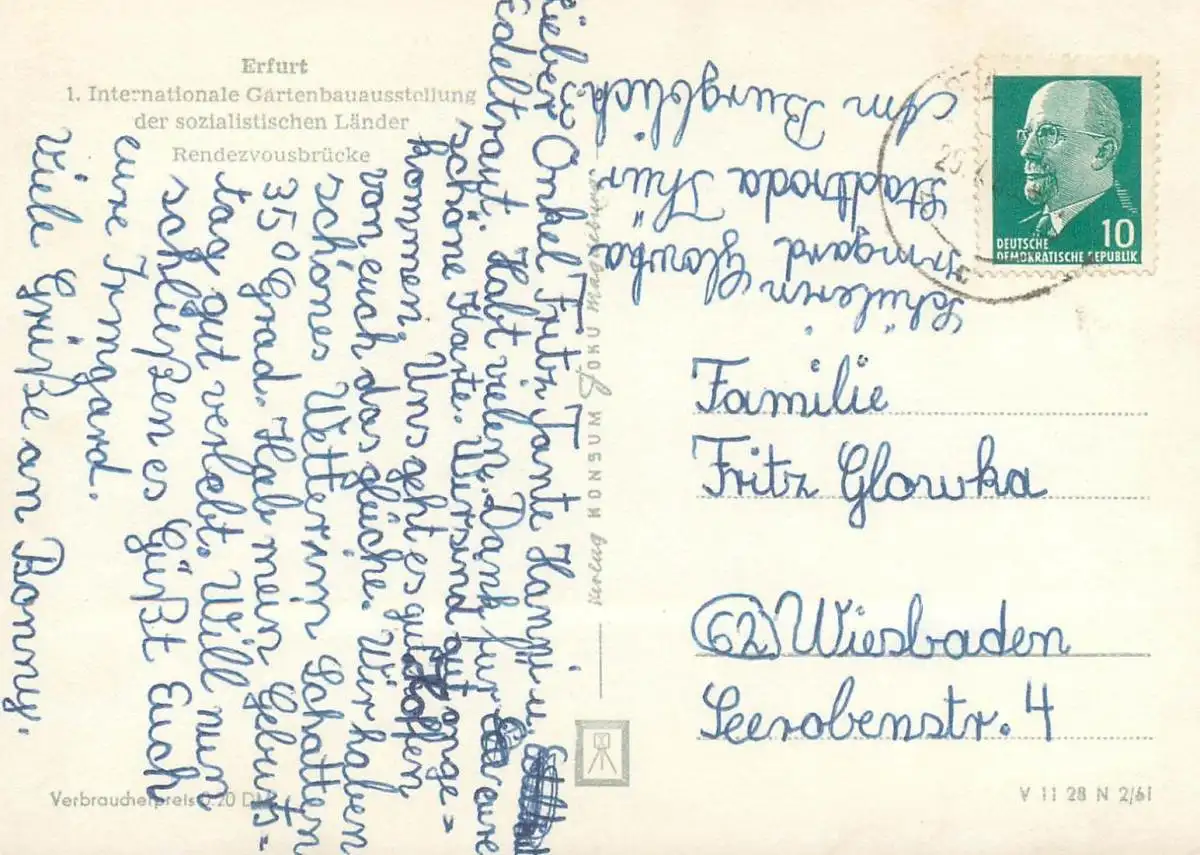 Erfurt
1. Internationale Gartenbauausstellung
der sozialistischen Länder
Rendezvousbrücke
Lieber Onkel Fritz, Tante Hanni u.
Edeltraut. Habt vielen Dank für eure
schöne Karte. Wir sind gut ange=
kommen. Uns geht es gut hoffen
von euch das gleiche. Wir haben
schönes Wetter im Schatten
35° Grad. Hab mein Geburts=
tag gut verlebt. Will nun
schließen es Güßt Euch
eure Irmgard.
Viele Grüße an Bonny.
Verbraucherpreis 0.20 DM
Verlag KONSUM FOKU Magdeburg
Schülerin
Irmgard Glowka
Stadtroda Thür
Am Burgblick 3
10
DEUTSCHE
DEMOKRATISCHE REPUBLIK
Familie
Fritz Glowka
62 Wiesbaden
Seerobenstr. 4
V 11 28 N 2/61